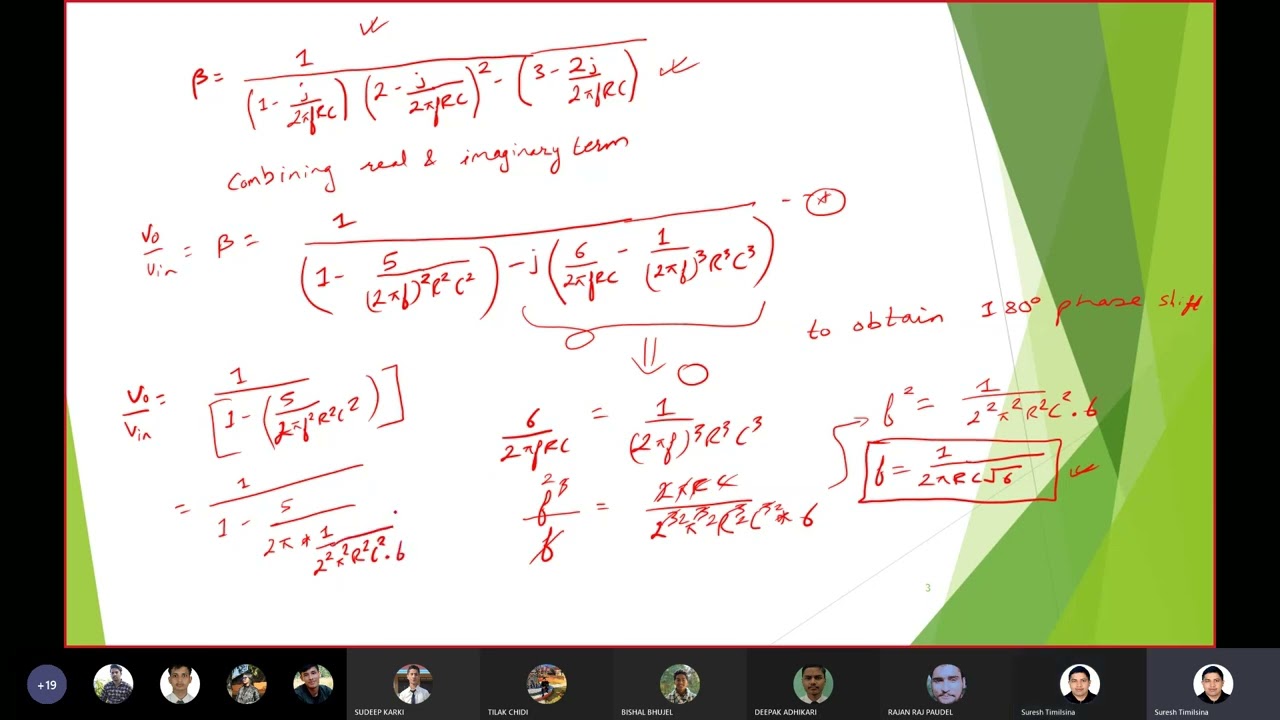 β = 1 / (1 - j/2πfRC) (2 - j/2πfRC)² - (3 - 2j/2πfRC)
Combining real & imaginary term
Vo/Vin = β = 1 / (1 - 5/(2πf)²R²C²) - j(6/2πfRC - 1/(2πf)³R³C³) - *
to obtain 180° phase shift
0
Vo/Vin = 1 / [1 - (5/2πf²R²C²)]
6/2πfRC = 1/(2πf)³R³C³
f² = 1/2²π²R²C².6
f = 1/2πRC√6
= 1 / 1 - 5 / 2π * 1/2²π²R²C².6
3
+19
SUDEEP KARKI
TILAK CHIDI
BISHAL BHUJEL
DEEPAK ADHIKARI
RAJAN RAJ PAUDEL
Suresh Timilsina
Suresh Timilsina